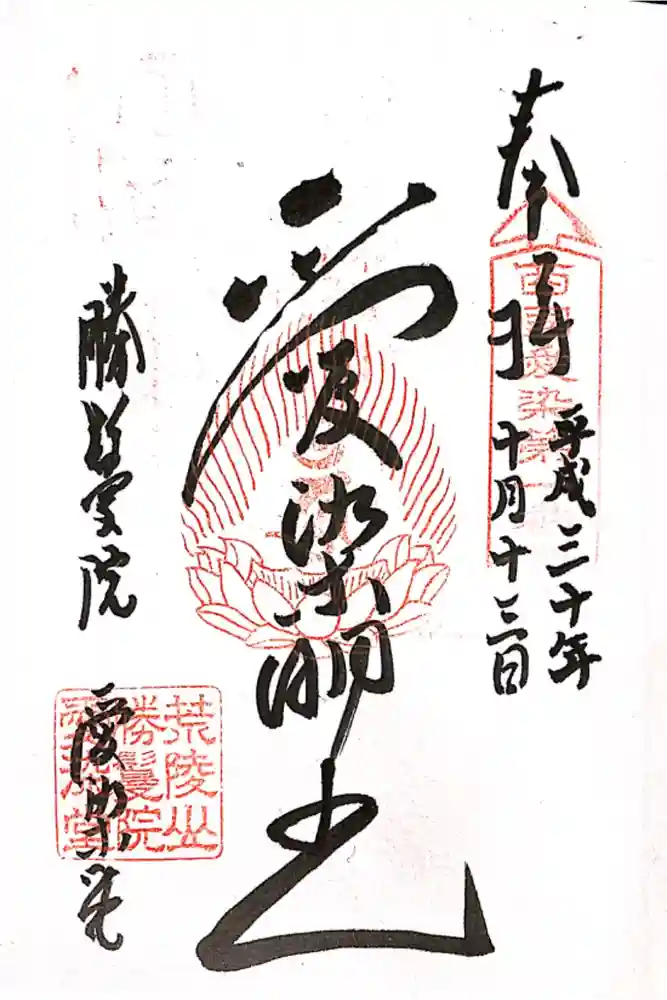 奉拝
平成三十年
十月十三日
西国愛染第一
愛染明王
勝鬘院
愛染堂
荒陵山
勝鬘院
愛染堂